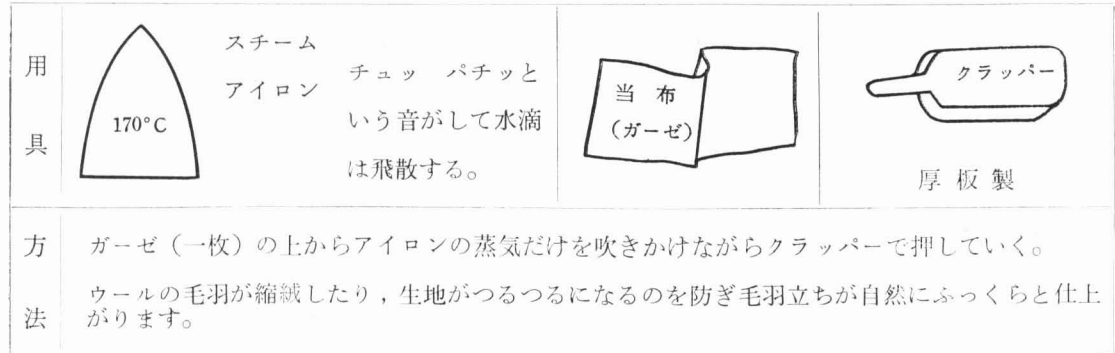 用具
170°C
スチーム
アイロン
チュッ パチッと
いう音がして水滴
は飛散する。
当布
(ガーゼ)
クラッパー
厚板製
方法
ガーゼ(一枚)の上からアイロンの蒸気だけを吹きかけながらクラッパーで押していく。
ウールの毛羽が縮絨したり,生地がつるつるになるのを防ぎ毛羽立ちが自然にふっくらと仕上
がります。